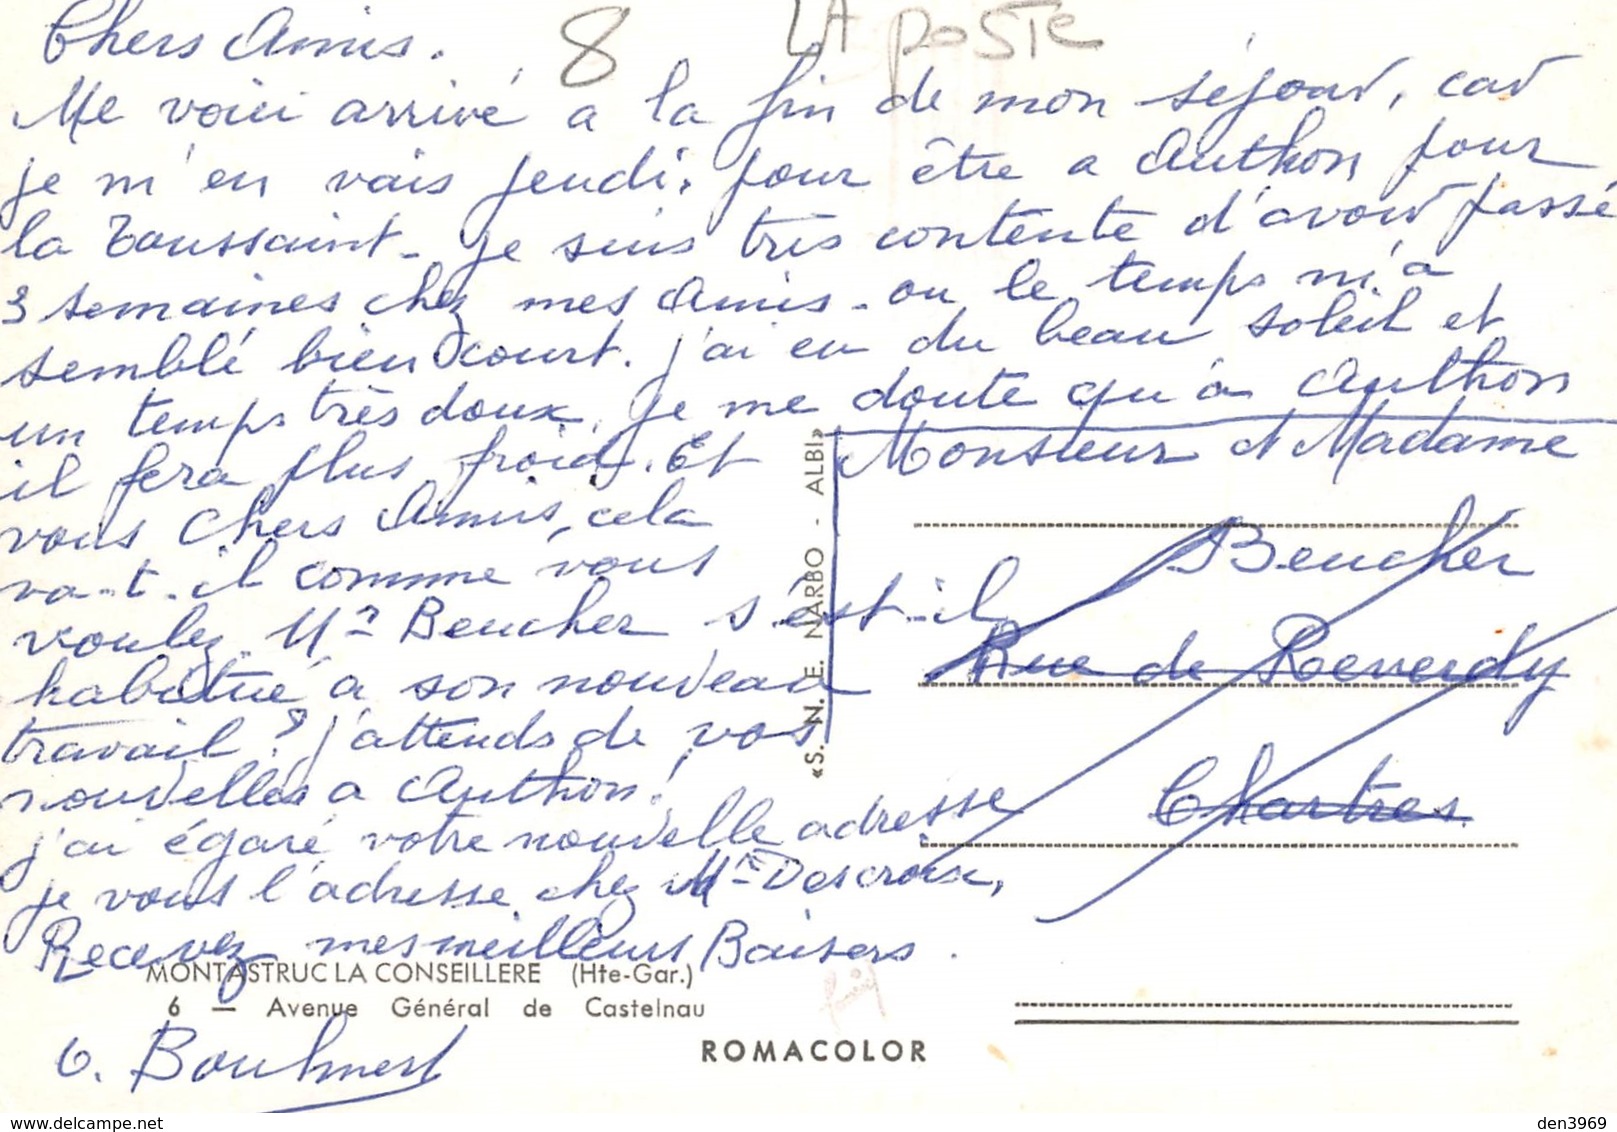 Chers Amis.
8
LA POSTE
Me voici arrivé a la fin de mon séjour, car
je m'en vais jeudi, pour être a Authon pour
la Toussaint - je suis très contente d'avoir passé
3 semaines chez mes Amis - ou le temps m'a
semblé bien court. j'ai eu du beau soleil et
un temps très doux, je me doute qu'a Authon
il fera plus froid. Et
vous Chers Amis, cela
va-t-il comme vous
voulez. Mr Beucher s'est-il
habitué a son nouveau
travail ? j'attends de vos
nouvelles a Authon!
j'ai égaré votre nouvelle adresse
je vous l'adresse chez Mme Descroix,
Recevez mes meilleurs Baisers.
MONTASTRUC LA CONSEILLERE (Hte-Gar.)
6 — Avenue Général de Castelnau
«S. N. E. NARBO - ALBI»
Monsieur et Madame
Beucher
Rue de Reverdy
Chartres
ROMACOLOR
https://www.delcampe.net
den3969